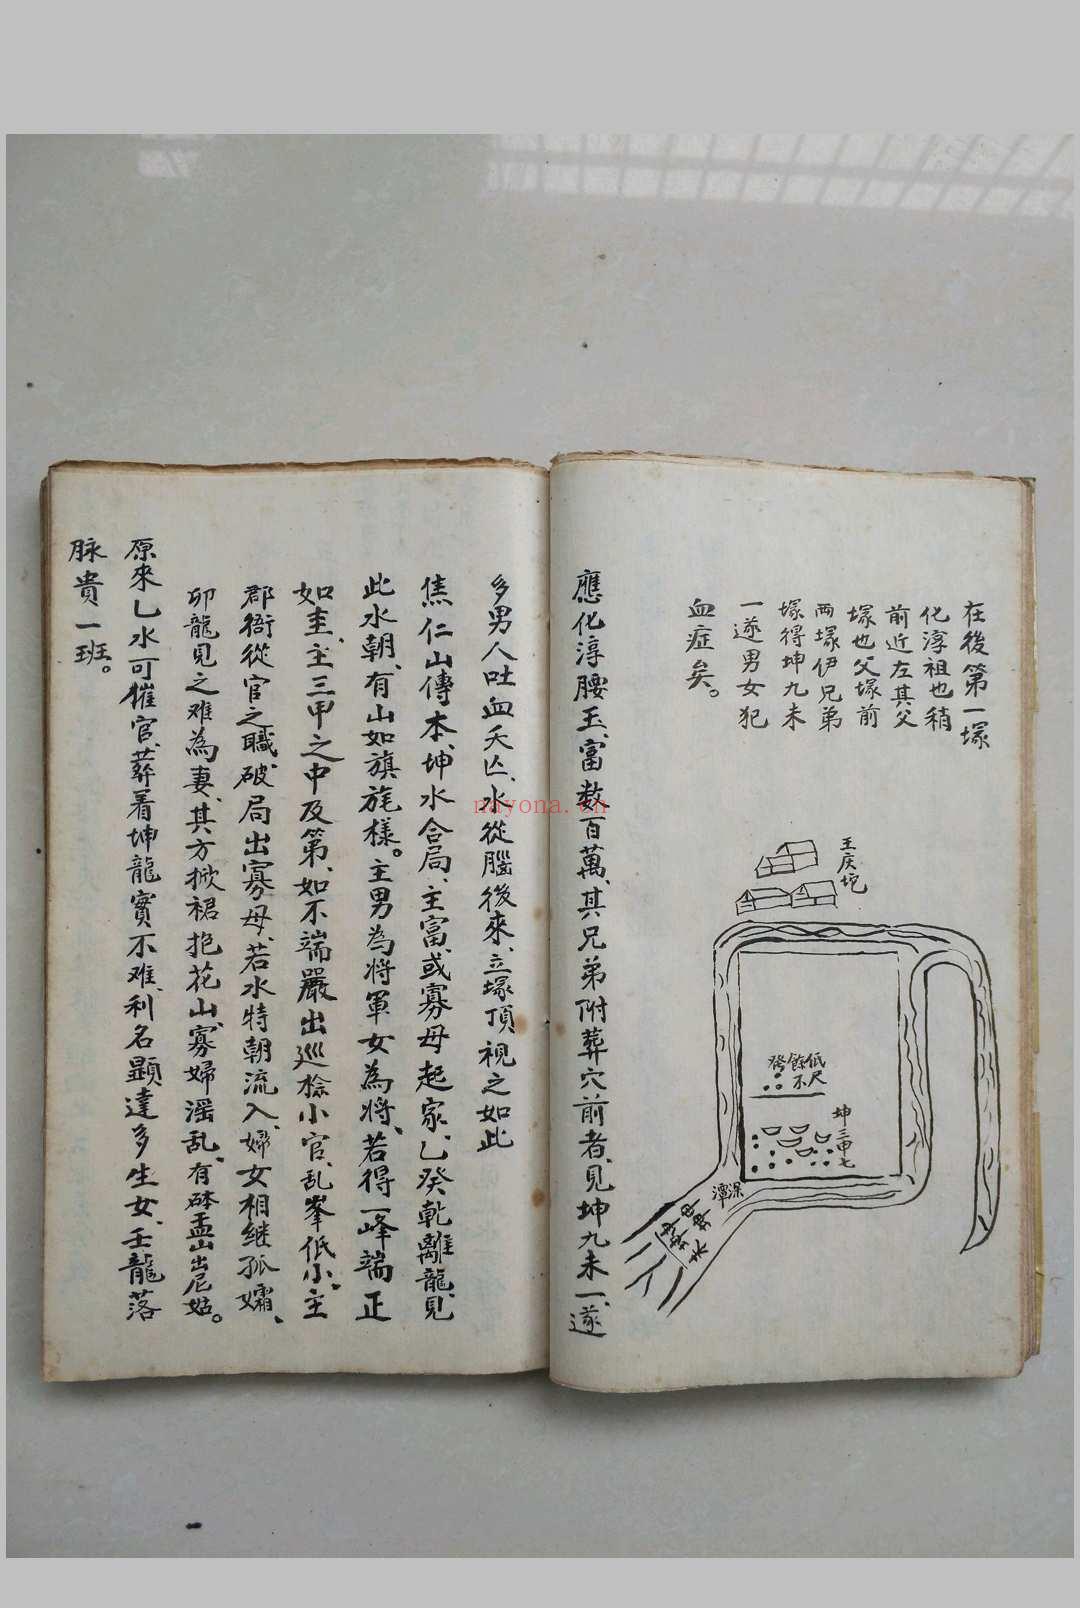 在後第一塚
化淳祖也稍
前近左其父
塚也父塚前
両塚伊兄弟
塚得坤九未
一遂男女犯
血症矣。
王庆坨
發餘低
不尺
坤三申七
深潭
應化淳腰玉、富数百萬、其兄弟附葬穴前者、見坤九未一、遂
多男人吐血夭亡、水從腦後來、立塚頂視之如此
焦仁山傳本、坤水合局、主富、或寡母起家、乙癸乾離龍、見
此水朝、有山如旗旄樣。主男為將軍女為將、若得一峰端正
如圭、主三甲之中及第、如不端嚴出巡檢小官、乱峯低小。主
郡衙從官之職、破局出寡母、若水特朝流入、婦女相继孤孀、
卯龍見之难為妻、其方掀裙抱花山、寡婦滛乱、有砵盂山出尼姑。
原來乙水可催官、葬着坤龍實不难、利名顕達多生女、壬龍落
脉貴一班。
nayona.cn